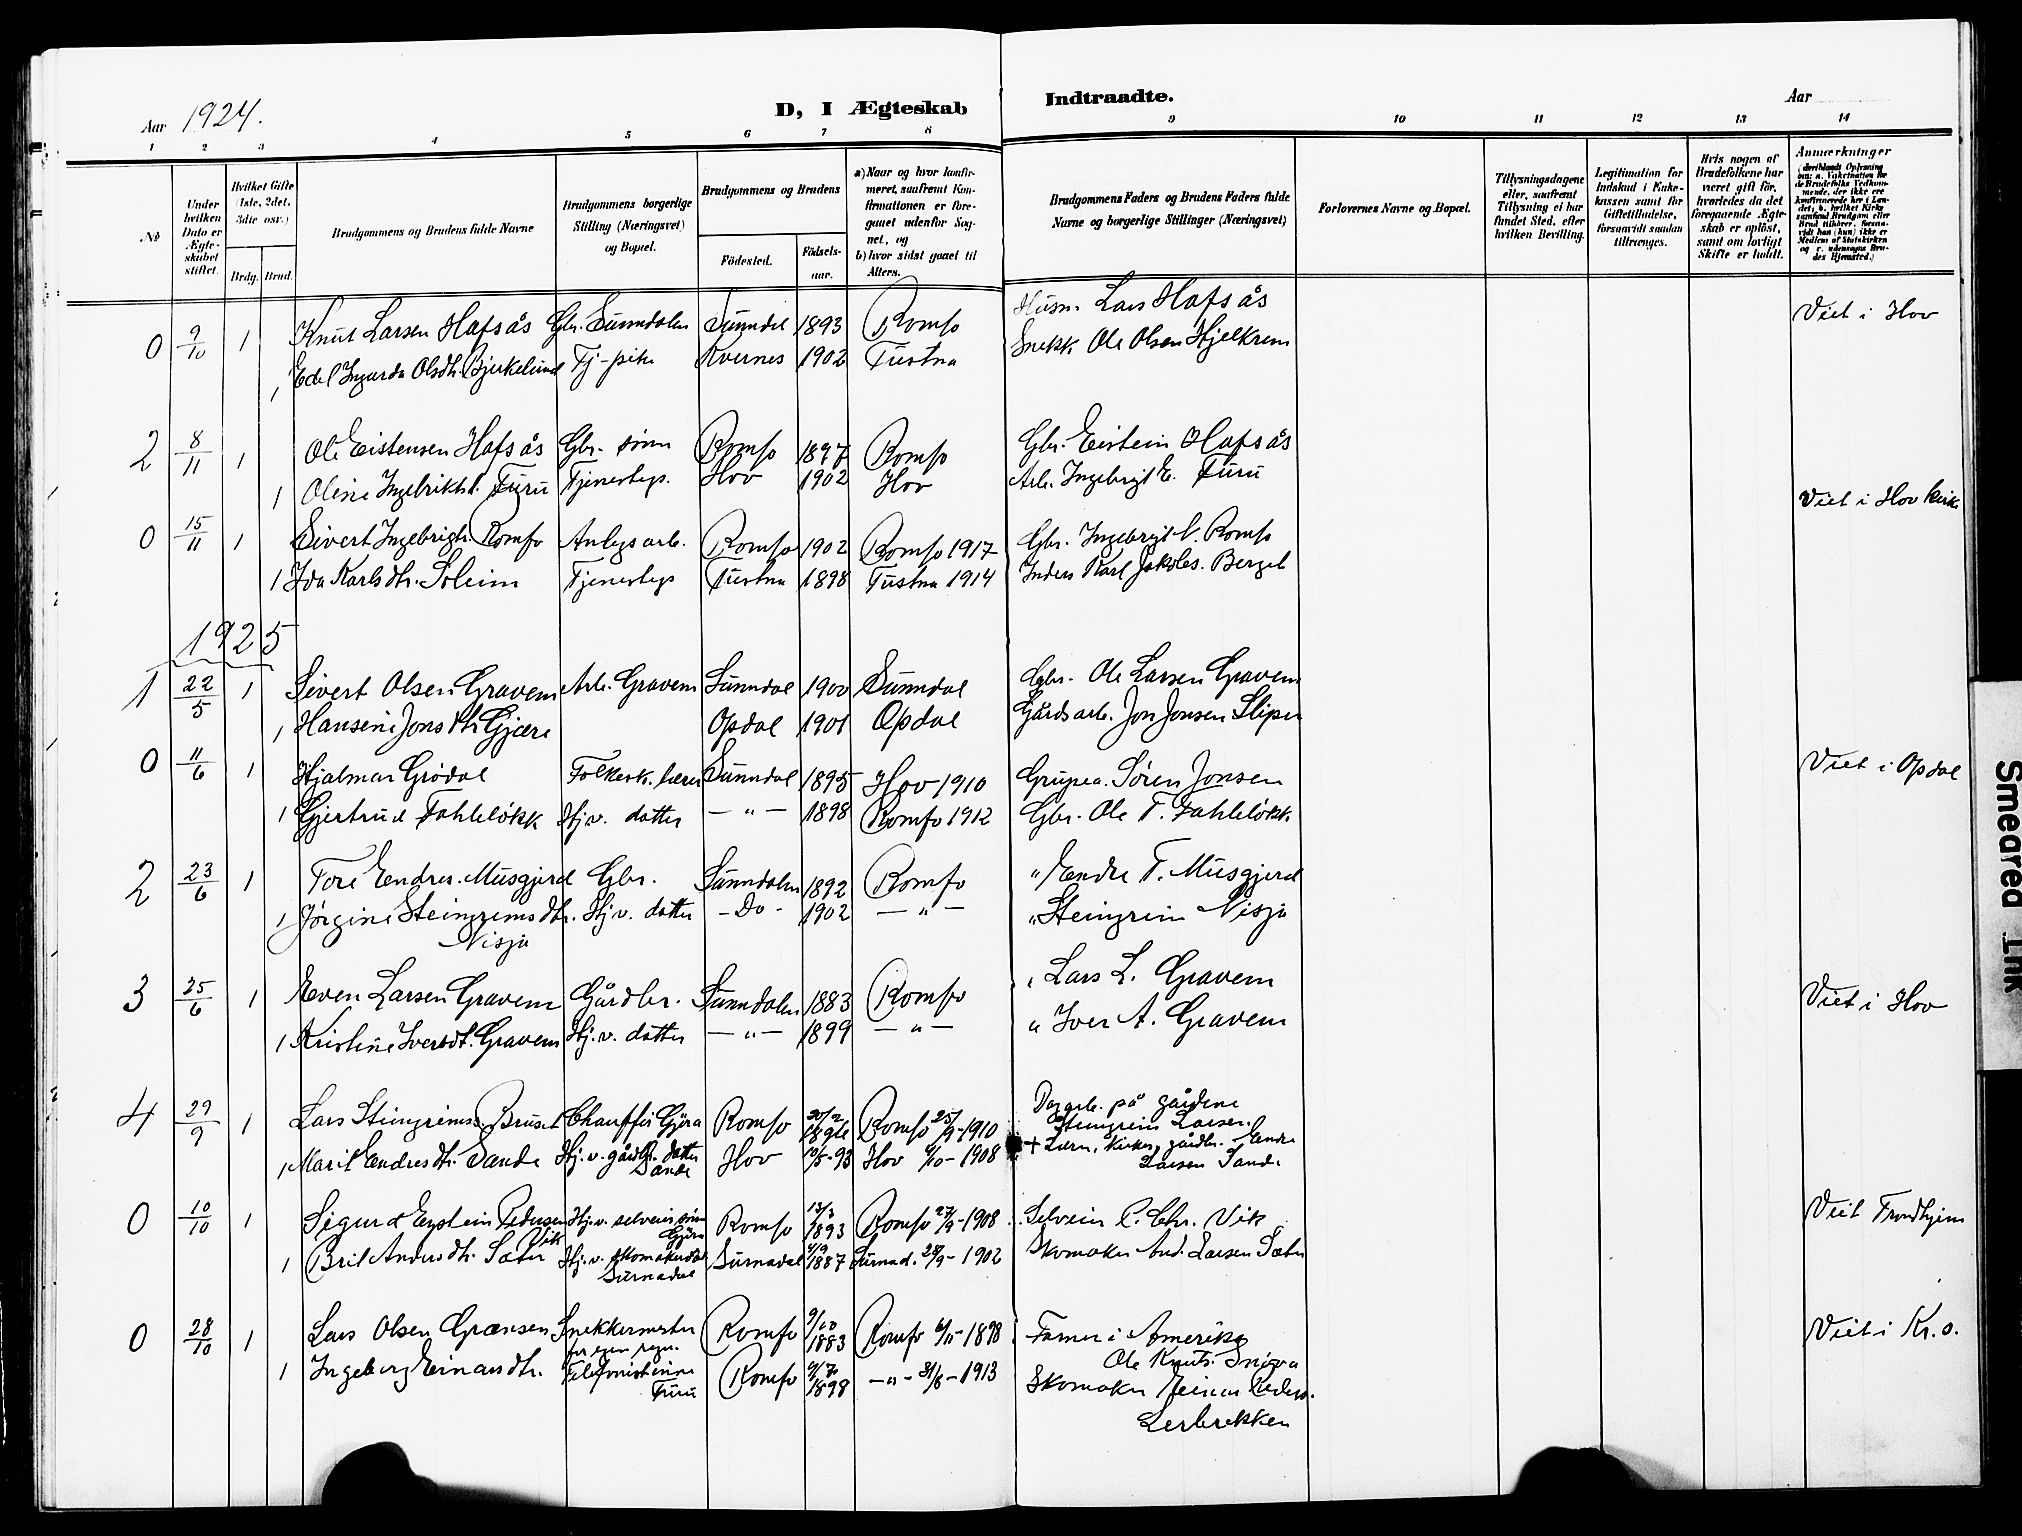 Aar 1924.
D, I Ægteskab Indtraadte.
Aar
1 2 3 4 5 6 7 8 9 10 11 12 13 14
No
Under hvilken Dato er Ægteskabet stiftet.
Hvilket Gifte (1ste, 2det, 3die osv.)
Brdg. Brud.
Brudgommens og Brudens fulde Navne
Brudgommens borgerlige Stilling (Næringsvei) og Bopæl.
Brudgommens og Brudens
Födested.
Födselsaar.
a) Naar og hvor konfirmeret, saafremt Konfirmationen er foregaaet udenfor Sognet, og
b) hvor sidst gaaet til Alters.
Brudgommens Faders og Brudens Faders fulde Navne og borgerlige Stillinger (Næringsvei)
Forlovernes Navne og Bopæl.
Tillysningsdagene eller, saafremt Tillysning ei har fundet Sted, efter hvilken Bevilling.
Legitimation for Indskud i Enkekassen samt for Giftetilladelse, forsaavidt saadan tiltrænges.
Hvis nogen af Brudefolkene har været gift før, hvorledes da det foregaaende Ægteskab er opløst, samt om lovligt Skifte er holdt.
Anmærkninger
0 9/10 1 Knut Larsen Hafsås Gbr. Sunndalen Sunndal 1893 Romfo Husm. Lars Hafsås Viet i Hov
1 Edel Ingarda Olsdtr. Bjerkelund Tj-pike Kvernes 1902 Tustna Snekk. Ole Olsen Hjelkrem
2 8/11 1 Ole Eistensen Hafsås Gbr. sønn Romfo 1897 Romfo Gbr. Eistein Hafsås
1 Oline Ingebriktsd. Furu Tjenestegs. Hov 1902 Hov Arb. Ingebrigt E. Furu
0 15/11 1 Sivert Ingebrigts. Romfo Anlegsarb. Romfo 1902 Romfo 1917 Gbr. Ingebrigt Romfo Viet i Hov kirke
1 Ida Karlsdtr. Soleim Tjenestegs Tustna 1898 Tustna 1914 Inders Karl Jakobs. Berget
1925
1 22/5 1 Sivert Olsen Gravem Arb. Gravem Sunndal 1900 Sunndal Gbr. Ole Larsen Gravem
1 Hansine Jonsdtr Gjæra Opdal 1901 Opdal Gårdsarb. Jon Jonsen Sliper
0 11/6 1 Hjalmar Grødal Folkesk. lærer Sunndal 1895 Hov 1910 Søren Jonsen Viet i Opdal
1 Gjertrud Fahleløkk Hj.v. datter — " — 1898 Romfo 1912 Gbr. Ole T. Fahleløkk
2 23/6 1 Tore Endres. Musgjerd Gbr. Sunndalen 1892 Romfo " Endre T. Musgjerd
1 Jørgine Steingrimsdtr. Hj.v. datter - Do - 1902 — " — " Steingrim Nisja
Nisja
3 25/6 1 Even Larsen Gravem Gårdbr. Sunndalen 1883 Romfo " Lars L. Gravem Viet i Hov
1 Kristine Iversdt. Gravem Hj.v. datter — " — 1899 — " — " Iver A. Gravem
4 29/9 1 Lars Steingrims. Bruset Chauffør Gjøra Romfo 20/2 1896 Romfo 25/9-1910 Dagarb. på gårdene
Steingrim Larsen.
1 Marit Endresdtr. Sande Hj.v. gårdbr. datter Sande Hov 10/5-93 Hov /10-1908 + Lærer, Kirkes, gårdbr. Endre Larsen Sande
0 10/10 1 Sigurd Eystein Pedersen Vik Hj.v. selveier sønn Gjøra Romfo 13/3 1893 Romfo 27/9-1908 Selveier P. Chr. Vik Viet Trondhjem
1 Brit Andersdtr. Sæter Hj.v. skomakerdat. Surnadal Surnadal 4/9 1887 Surnad. 28/9-1902 Skomaker And. Larsen Sæter
0 28/10 1 Lars Olsen Grænsen Snekkermester for egen regn. Romfo 9/10 1883 Romfo 6/11-1898 Farmer i Amerika Viet i Kr.s.
Ole Knuts.
1 Ingeborg Einarsdtr. Telefonistinne Furu Romfo 9/7 1898 — " — 31/8-1913 Skomaker Einar Peders.
Lerbrekken
Smeared Ink